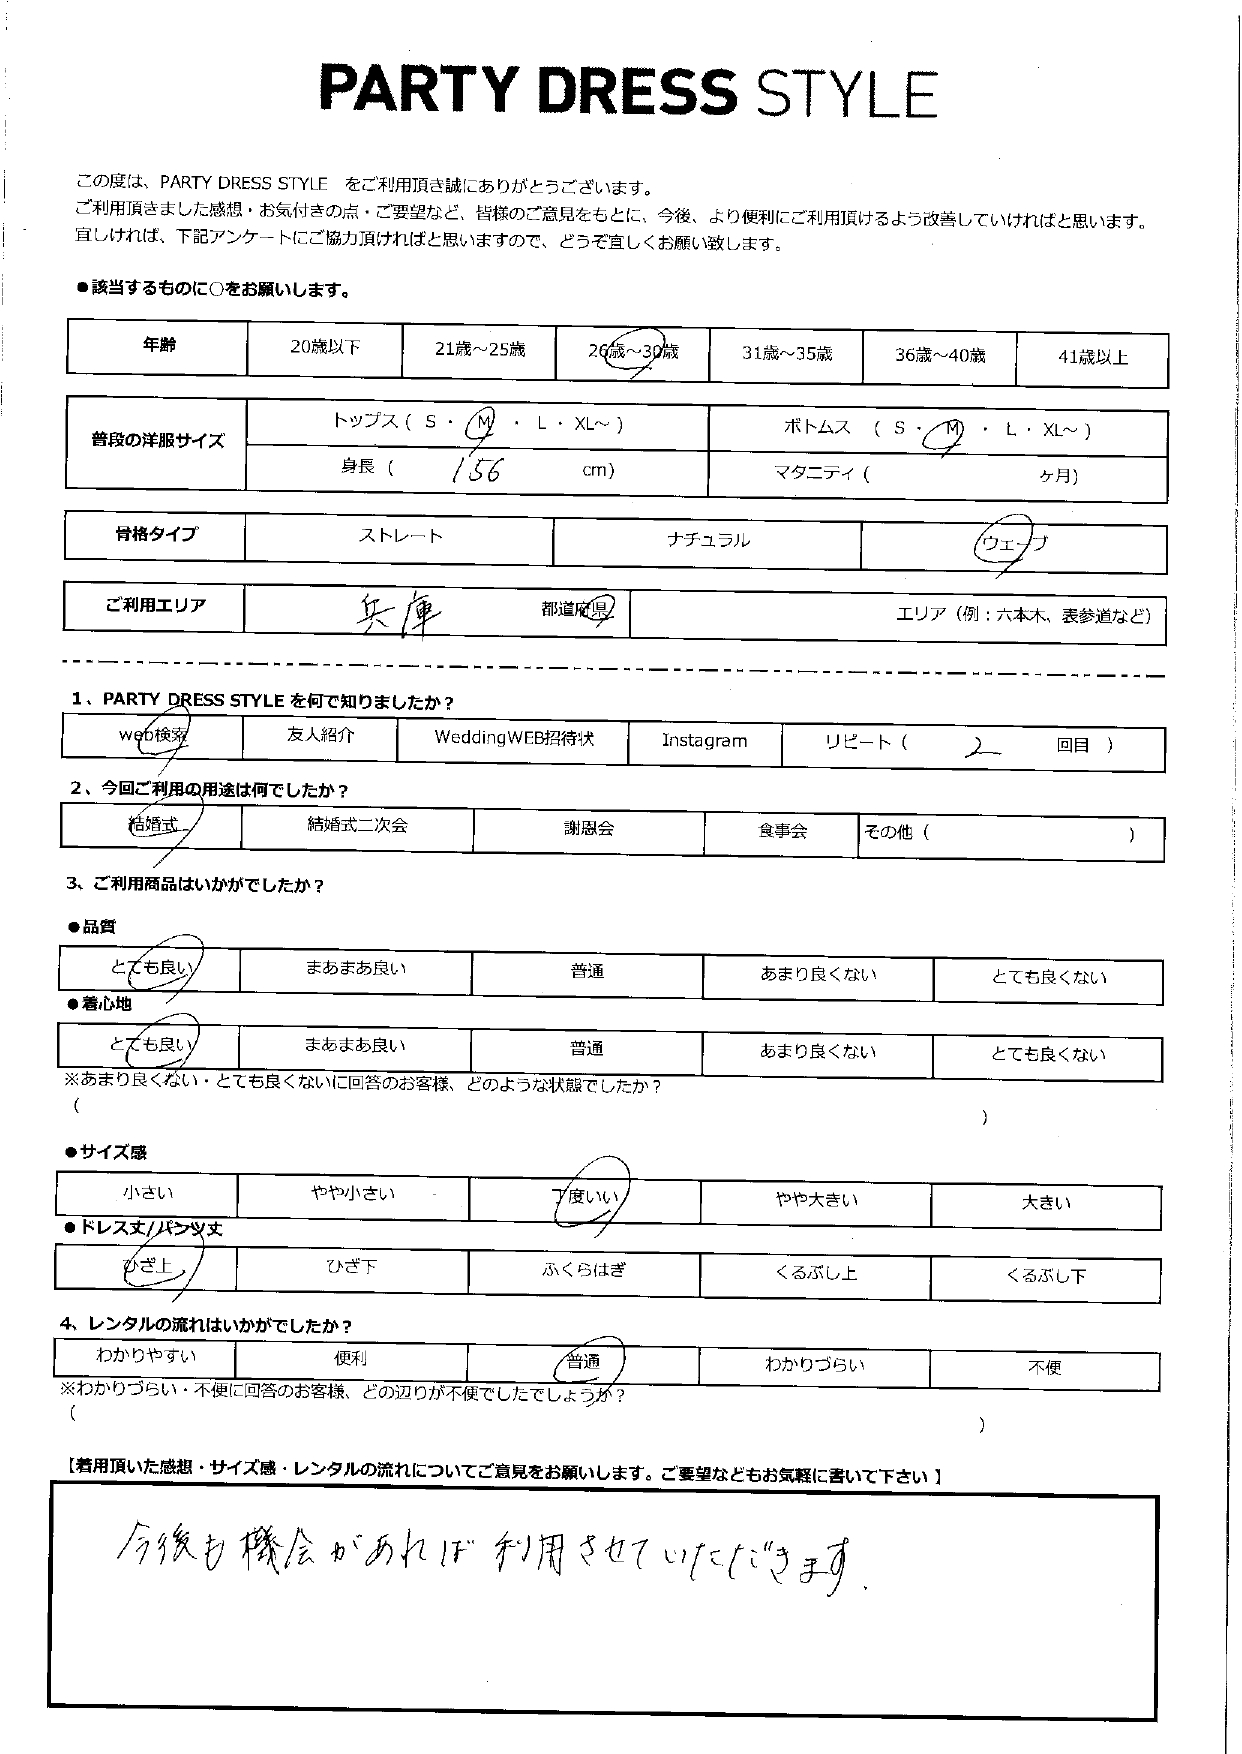 PARTY DRESS STYLE
この度は、PARTY DRESS STYLE をご利用頂き誠にありがとうございます。
ご利用頂きました感想・お気付きの点・ご要望など、皆様のご意見をもとに、今後、より便利にご利用頂けるよう改善していければと思います。
宜しければ、下記アンケートにご協力頂ければと思いますので、どうぞ宜しくお願い致します。
●該当するものに○をお願いします。
年齢 20歳以下 21歳～25歳 26歳～30歳 31歳～35歳 36歳～40歳 41歳以上
普段の洋服サイズ トップス ( S ・ M ・ L ・ XL～ ) ボトムス ( S ・ M ・ L ・ XL～ )
身長 ( 156 cm) マタニティ ( ヶ月)
骨格タイプ ストレート ナチュラル ウェーブ
ご利用エリア 兵庫 都道府県 エリア（例：六本木、表参道など）
1、PARTY DRESS STYLE を何で知りましたか？
web検索 友人紹介 WeddingWEB招待状 Instagram リピート ( 2 回目 )
2、今回ご利用の用途は何でしたか？
結婚式 結婚式二次会 謝恩会 食事会 その他 ( )
3、ご利用商品はいかがでしたか？
●品質
とても良い まあまあ良い 普通 あまり良くない とても良くない
●着心地
とても良い まあまあ良い 普通 あまり良くない とても良くない
※あまり良くない・とても良くないに回答のお客様、どのような状態でしたか？
( )
●サイズ感
小さい やや小さい 丁度いい やや大きい 大きい
●ドレス丈/パンツ丈
ひざ上 ひざ下 ふくらはぎ くるぶし上 くるぶし下
4、レンタルの流れはいかがでしたか？
わかりやすい 便利 普通 わかりづらい 不便
※わかりづらい・不便に回答のお客様、どの辺りが不便でしたでしょうか？
( )
【着用頂いた感想・サイズ感・レンタルの流れについてご意見をお願いします。ご要望などもお気軽に書いて下さい】
今後も機会があれば利用させていただきます.